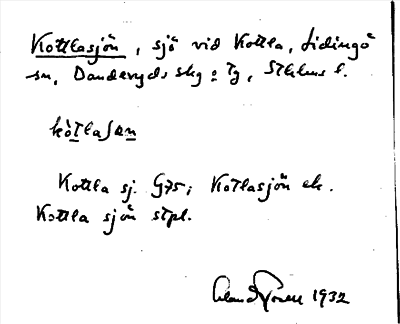 Kottlasjön, sjö vid Kottla, Lidingö
sn, Danderyds skg o Tg, Sthlms l.
kòtlaʃøn
Kottla sj. G75; Kotlasjön ek.
Kottla sjön stpl.
1932